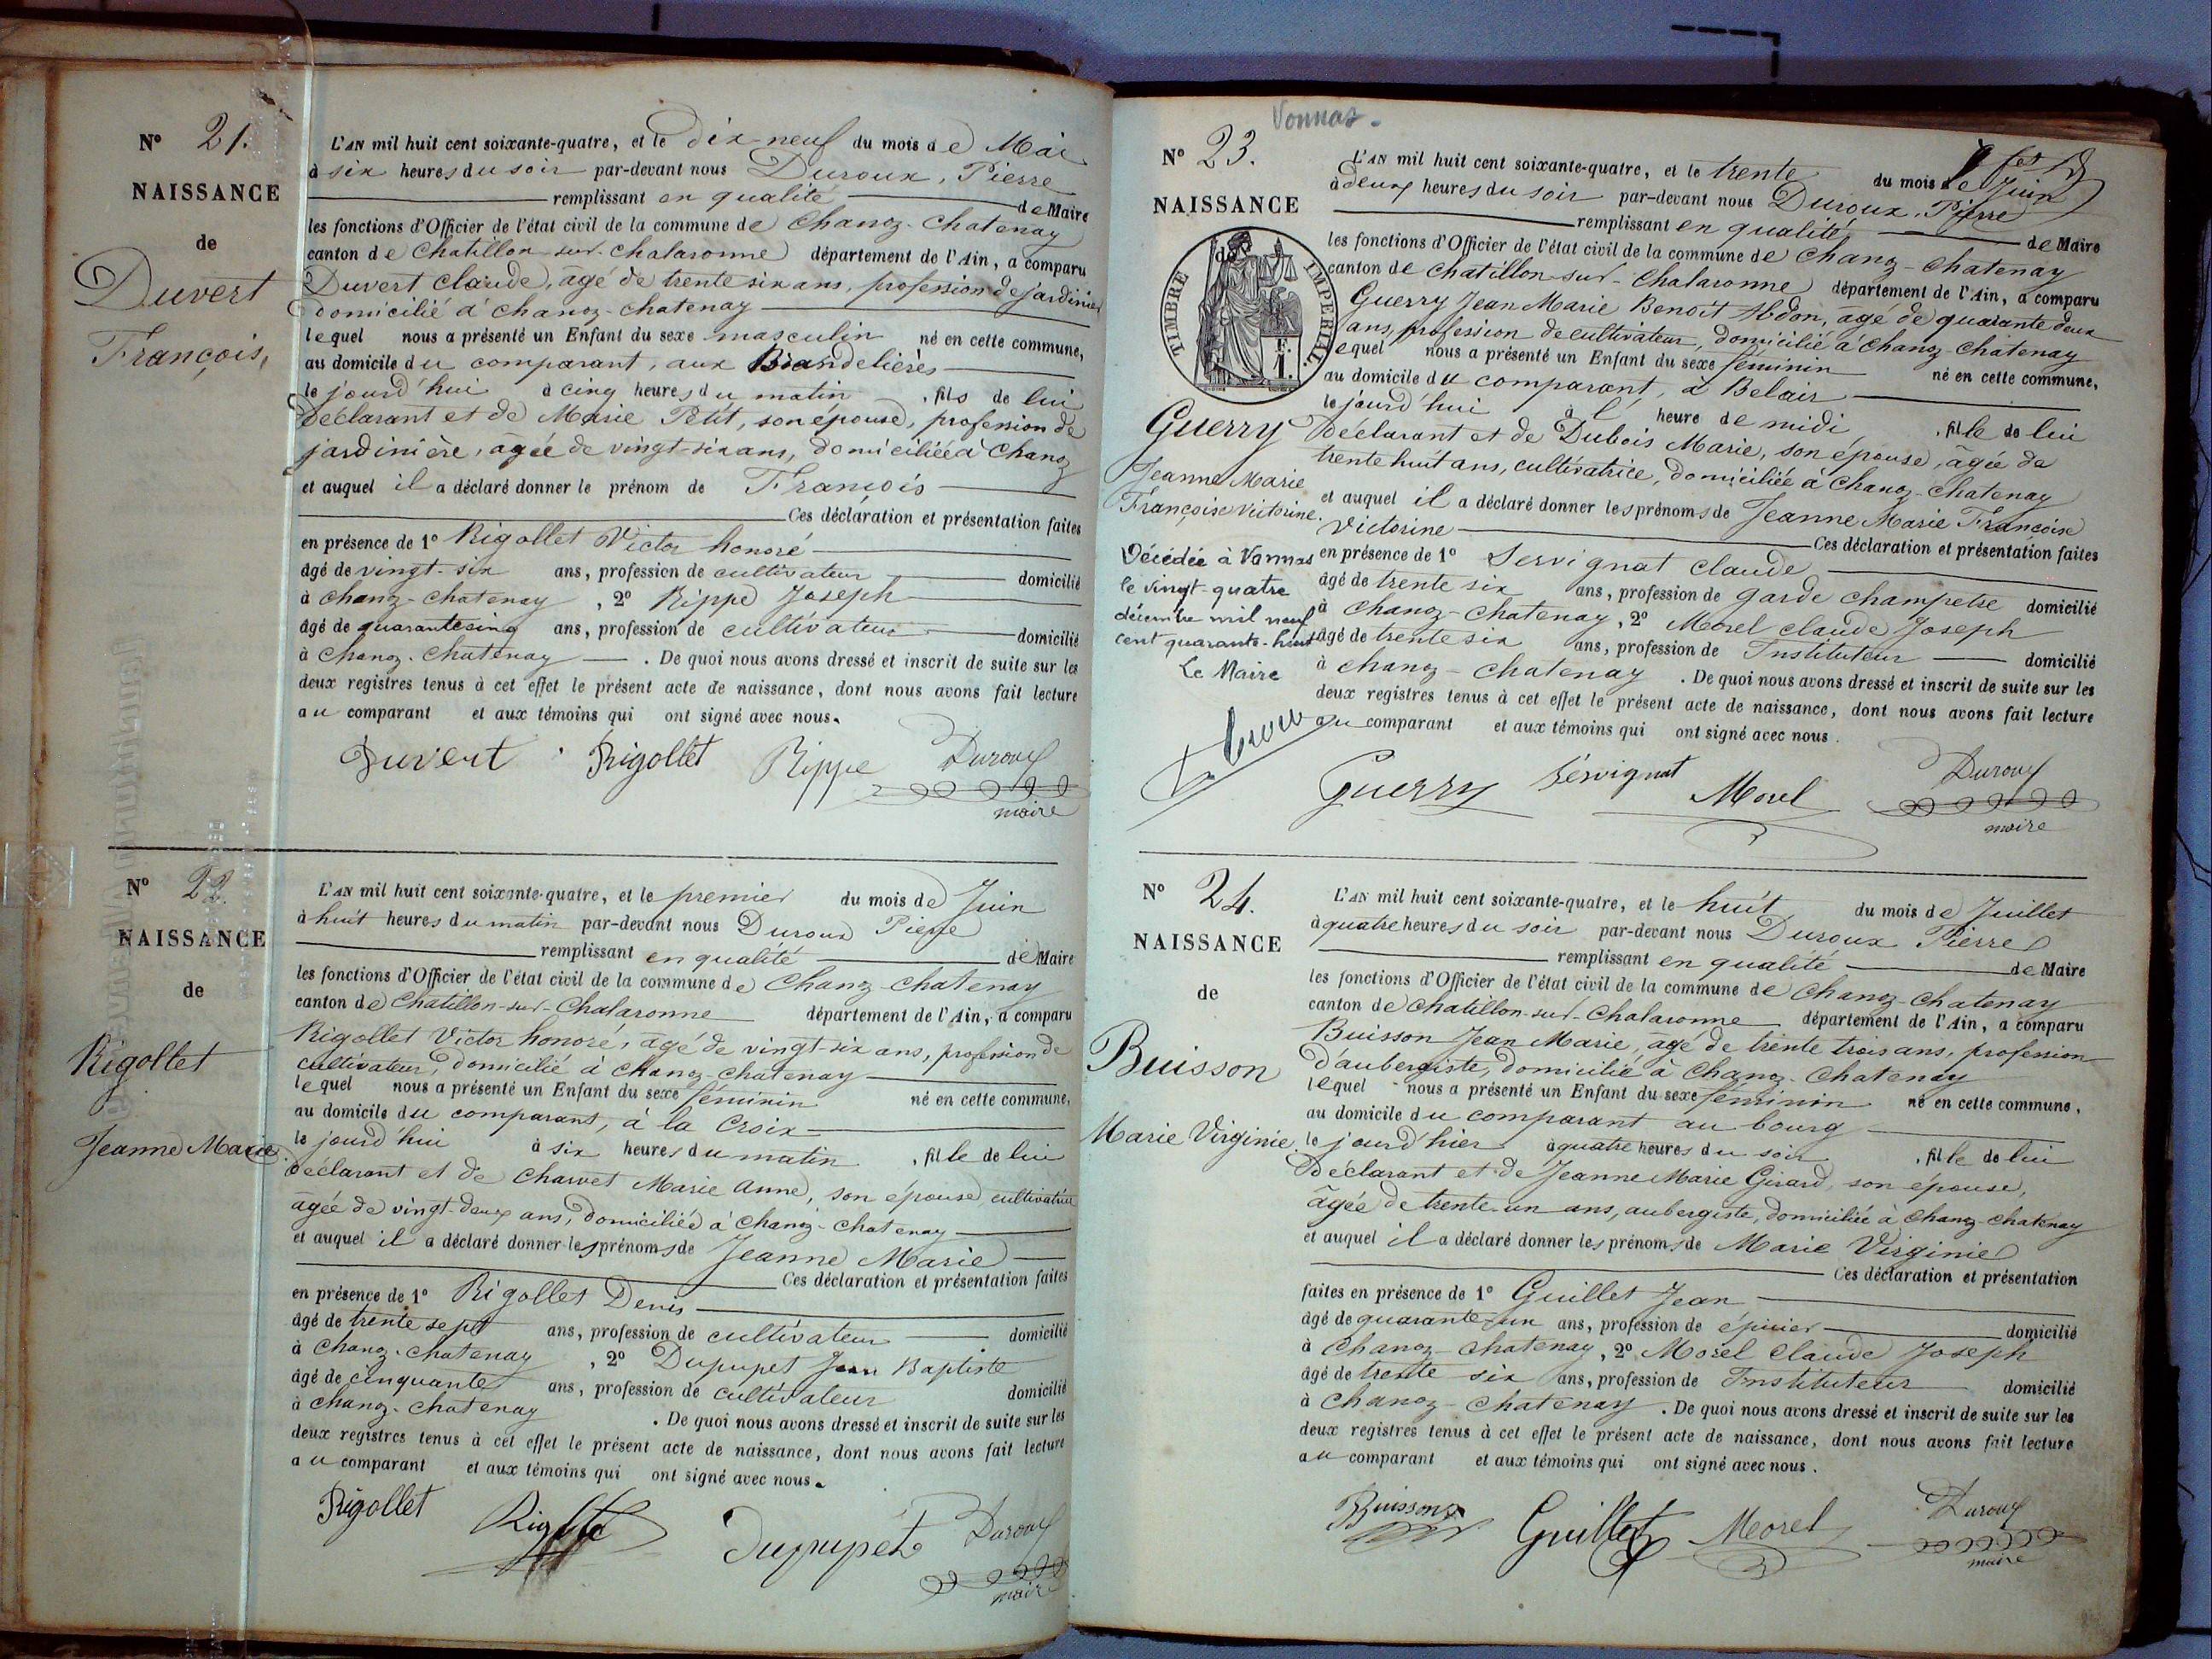 N° 21.
NAISSANCE
de
Duvert
François,
L'AN mil huit cent soixante-quatre, et le dix-neuf du mois de Mai
à six heures du soir par-devant nous Duroux, Pierre
remplissant en qualité de Maire
les fonctions d'Officier de l'état civil de la commune de Chanoz-Chatenay
canton de Chatillon-sur-Chalaronne département de l'Ain, a comparu
Duvert Claude, âgé de trente six ans, profession de jardinier
domicilié à Chanoz-Chatenay
lequel nous a présenté un Enfant du sexe masculin né en cette commune,
au domicile du comparant, aux
le jourd'hui à cinq heures du matin , fils de lui
Déclarant et de Marie Petit, son épouse, profession de
jardinière, âgée de vingt-six ans, domiciliée à Chanoz
et auquel il a déclaré donner le prénom de François
Ces déclaration et présentation faites
en présence de 1° Rigollet Victor honoré
âgé de vingt-six ans, profession de cultivateur domicilié
à Chanoz-Chatenay , 2° Rippe Joseph
âgé de quarante cinq ans, profession de cultivateur domicilié
à Chanoz-Chatenay . De quoi nous avons dressé et inscrit de suite sur les
deux registres tenus à cet effet le présent acte de naissance, dont nous avons fait lecture
au comparant et aux témoins qui ont signé avec nous.
Duvert Rigollet Rippe Duroux
maire
N° 22.
NAISSANCE
de
Rigollet
Jeanne Marie
L'AN mil huit cent soixante-quatre, et le premier du mois de Juin
à huit heures du matin par-devant nous Duroux Pierre
remplissant en qualité de Maire
les fonctions d'Officier de l'état civil de la commune de Chanoz-Chatenay
canton de Chatillon-sur-Chalaronne département de l'Ain, a comparu
Rigollet Victor honoré, âgé de vingt-six ans, profession de
cultivateur, domicilié à Chanoz-Chatenay
lequel nous a présenté un Enfant du sexe féminin né en cette commune,
au domicile du comparant, à la Croix
le jourd'hui à six heures du matin , fille de lui
Déclarant et de Charvet Marie Anne, son épouse, cultivatrice
âgée de vingt-deux ans, domiciliée à Chanoz-Chatenay
et auquel il a déclaré donner les prénoms de Jeanne Marie
Ces déclaration et présentation faites
en présence de 1° Rigollet Denis
âgé de trente sept ans, profession de cultivateur domicilié
à Chanoz-Chatenay , 2° Dupupet Jean Baptiste
âgé de cinquante ans, profession de cultivateur domicilié
à Chanoz-Chatenay . De quoi nous avons dressé et inscrit de suite sur les
deux registres tenus à cet effet le présent acte de naissance, dont nous avons fait lecture
au comparant et aux témoins qui ont signé avec nous.
Rigollet Rigollet Dupupet Duroux
maire
Vonnas.
N° 23.
NAISSANCE
de
TIMBRE IMPERIAL.
F.
1.
Guerry
Jeanne Marie
Françoise Victorine.
Décédée à Vonnas
le vingt-quatre
décembre mil neuf
cent quarante-huit
Le Maire
L'AN mil huit cent soixante-quatre, et le trente du mois de Juin
à deux heures du soir par-devant nous Duroux, Pierre
remplissant en qualité de Maire
les fonctions d'Officier de l'état civil de la commune de Chanoz-Chatenay
canton de Chatillon-sur-Chalaronne département de l'Ain, a comparu
Guerry Jean Marie Benoît Abdon, âgé de quarante deux
ans, profession de cultivateur, domicilié à Chanoz-Chatenay
lequel nous a présenté un Enfant du sexe féminin né en cette commune,
au domicile du comparant, à Belair
le jourd'hui à l' heure de midi , fille de lui
Déclarant et de Dubois Marie, son épouse, âgée de
trente huit ans, cultivatrice, domiciliée à Chanoz-Chatenay
et auquel il a déclaré donner les prénoms de Jeanne Marie Françoise
Victorine
Ces déclaration et présentation faites
en présence de 1° Servignat Claude
âgé de trente six ans, profession de garde champetre domicilié
à Chanoz-Chatenay, 2° Morel Claude Joseph
âgé de trente six ans, profession de Instituteur domicilié
à Chanoz-Chatenay . De quoi nous avons dressé et inscrit de suite sur les
deux registres tenus à cet effet le présent acte de naissance, dont nous avons fait lecture
au comparant et aux témoins qui ont signé avec nous.
Guerry Servignat Morel Duroux
maire
N° 24.
NAISSANCE
de
Buisson
Marie Virginie.
L'AN mil huit cent soixante-quatre, et le huit du mois de Juillet
à quatre heures du soir par-devant nous Duroux Pierre
remplissant en qualité de Maire
les fonctions d'Officier de l'état civil de la commune de Chanoz-Chatenay
canton de Chatillon-sur-Chalaronne département de l'Ain, a comparu
Buisson Jean Marie, âgé de trente trois ans, profession
d'aubergiste, domicilié à Chanoz-Chatenay
lequel nous a présenté un Enfant du sexe féminin né en cette commune,
au domicile du comparant au bourg
le jourd'hier à quatre heures du soir , fille de lui
Déclarant et de Jeanne Marie Girard, son épouse,
âgée de trente-un ans, aubergiste, domiciliée à Chanoz-Chatenay
et auquel il a déclaré donner les prénoms de Marie Virginie
Ces déclaration et présentation
faites en présence de 1° Guillet Jean
âgé de quarante-un ans, profession de épicier domicilié
à Chanoz-Chatenay, 2° Morel Claude Joseph
âgé de trente six ans, profession de Instituteur domicilié
à Chanoz-Chatenay . De quoi nous avons dressé et inscrit de suite sur les
deux registres tenus à cet effet le présent acte de naissance, dont nous avons fait lecture
au comparant et aux témoins qui ont signé avec nous.
Buisson Guillet Morel Duroux
maire